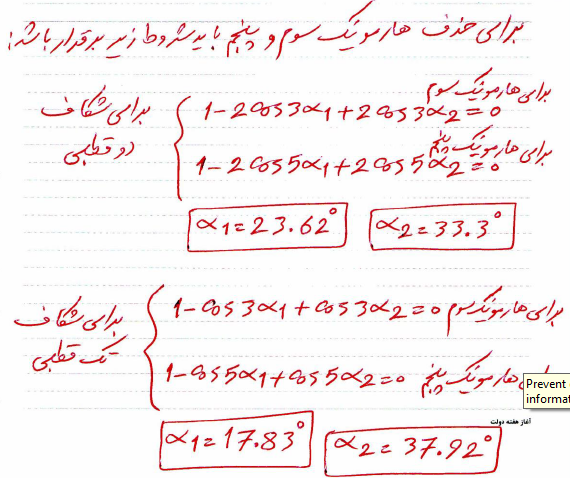 برای حذف هارمونیک سوم و پنجم باید شروط زیر برقرار باشد:
برای شکاف دو قطبی
برای هارمونیک سوم
1-2cos3α1+2cos3α2=0
برای هارمونیک پنجم
1-2cos5α1+2cos5α2=0
α1=23.62° α2=33.3°
برای شکاف تک قطبی
1-cos3α1+cos3α2=0 برای هارمونیک سوم
1-cos5α1+cos5α2=0 هارمونیک پنجم
Prevent
informat
آغاز هفته دولت
α1=17.83° α2=37.92°